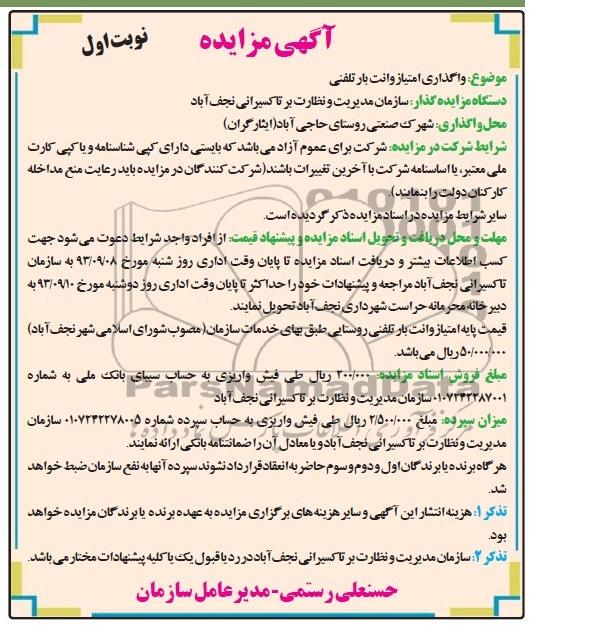 آگهی مزایده
نوبت اول
موضوع: واگذاری امتیاز وانت بار تلفنی
دستگاه مزایده گذار: سازمان مدیریت و نظارت بر تاکسیرانی نجف آباد
محل واگذاری: شهرک صنعتی روستای حاجی آباد(ایثارگران)
شرایط شرکت در مزایده: شرکت برای عموم آزاد می باشد که بایستی دارای کپی شناسنامه و یا کپی کارت
ملی معتبر، یا اساسنامه شرکت با آخرین تغییرات باشند(شرکت کنندگان در مزایده باید رعایت منع مداخله
کارکنان دولت را بنمایند).
سایر شرایط مزایده در اسناد مزایده ذکر گردیده است.
مهلت و محل دریافت و تحویل اسناد مزایده و پیشنهاد قیمت: از افراد واجد شرایط دعوت می شود جهت
کسب اطلاعات بیشتر و دریافت اسناد مزایده تا پایان وقت اداری روز شنبه مورخ ۹۳/۰۹/۰۸ به سازمان
تاکسیرانی نجف آباد مراجعه و پیشنهادات خود را حداکثر تا پایان وقت اداری روز دوشنبه مورخ ۹۳/۰۹/۱۰ به
دبیرخانه محرمانه حراست شهرداری نجف آباد تحویل نمایند.
قیمت پایه امتیاز وانت بار تلفنی روستایی طبق بهای خدمات سازمان(مصوب شورای اسلامی شهر نجف آباد)
۵۰/۰۰۰/۰۰۰ ریال می باشد.
مبلغ فروش اسناد مزایده: ۲۰۰/۰۰۰ ریال طی فیش واریزی به حساب سیبای بانک ملی به شماره
۰۱۰۷۲۴۲۲۸۷۰۰۱ سازمان مدیریت و نظارت بر تاکسیرانی نجف آباد
میزان سپرده: مبلغ ۲/۵۰۰/۰۰۰ ریال طی فیش واریزی به حساب سپرده شماره ۰۱۰۷۲۴۲۲۷۸۰۰۵ سازمان
مدیریت و نظارت بر تاکسیرانی نجف آباد و یا معادل آن را ضمانتنامه بانکی ارائه نمایند.
هرگاه برنده یا برندگان اول و دوم و سوم حاضر به انعقاد قرارداد نشوند سپرده آنها به نفع سازمان ضبط خواهد
شد.
تذکر۱: هزینه انتشار این آگهی و سایر هزینه های برگزاری مزایده به عهده برنده یا برندگان مزایده خواهد
بود.
تذکر۲: سازمان مدیریت و نظارت بر تاکسیرانی نجف آباد در رد یا قبول یک یا کلیه پیشنهادات مختار می باشد.
حسنعلی رستمی- مدیرعامل سازمان
ParsNamadData